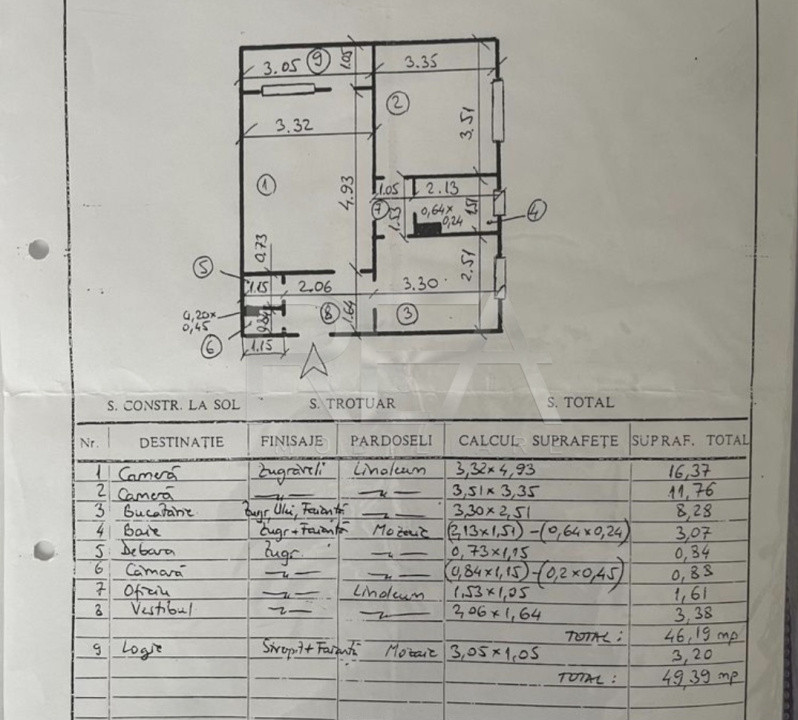 3.05 9 1.05 3.35
2
3.32 3.51
1 4.93 1.05 2.13
7 1.53 0,64x 0,24 1.51 4
0.73
5 1.15 2.06 3.30 2.51
0,20x 0,45 0.84 8 1.64 3
6 1.15
S. CONSTR. LA SOL S. TROTUAR S. TOTAL
Nr. DESTINAȚIE FINISAJE PARDOSELI CALCUL SUPRAFEȚE SUPRAF. TOTAL
1 Cameră Zugrăveli Linoleum 3,32×4,93 16,37
2 Cameră —〃— —〃— 3,51×3,35 11,76
3 Bucătărie Zugr, Ulei, Faianță —〃— 3,30×2,51 8,28
4 Baie Zugr+Faianță Mozaic (2,13×1,51)-(0,64×0,24) 3,07
5 Debara Zugr. —〃— 0,73×1,15 0,84
6 Cămară —〃— —〃— (0,84×1,15)-(0,2×0,45) 0,88
7 Oficiu —〃— Linoleum 1,53×1,05 1,61
8 Vestibul —〃— —〃— 2,06×1,64 3,38
TOTAL: 46,19 mp
9 Logie Mozaic 3,05×1,05 3,20
TOTAL: 49,39 mp